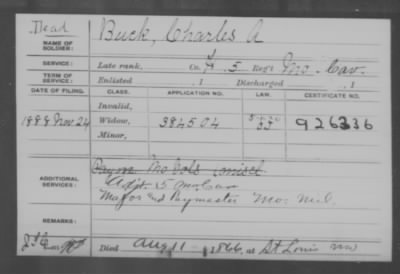 Dead
NAME OF SOLDIER: Buck, Charles A
SERVICE: Late rank, Co. 5 Reg't Mo. Cav.
TERM OF SERVICE: Enlisted , 1 Discharged , 1
DATE OF FILING. CLASS. APPLICATION NO. LAW. CERTIFICATE NO.
Invalid,
1888 Nov 24 Widow, 384504 926336
Minor,
ADDITIONAL SERVICES: Mo Vols
Adjt. 5 Mo Cav
Major and Paymaster Mo. M.
REMARKS:
Died Aug 11 1866, at St Louis Mo